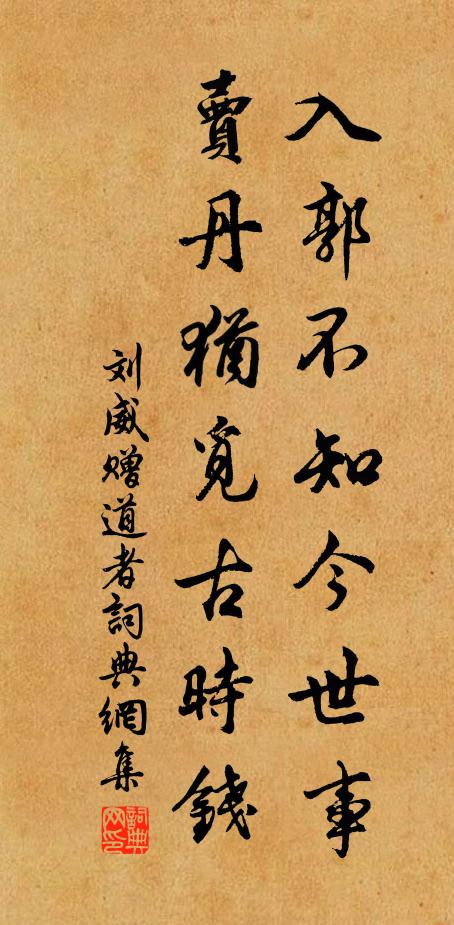 入郭不知今世事
賣丹猶覓古時錢
刘威赠道者詞典網集
詞典网印